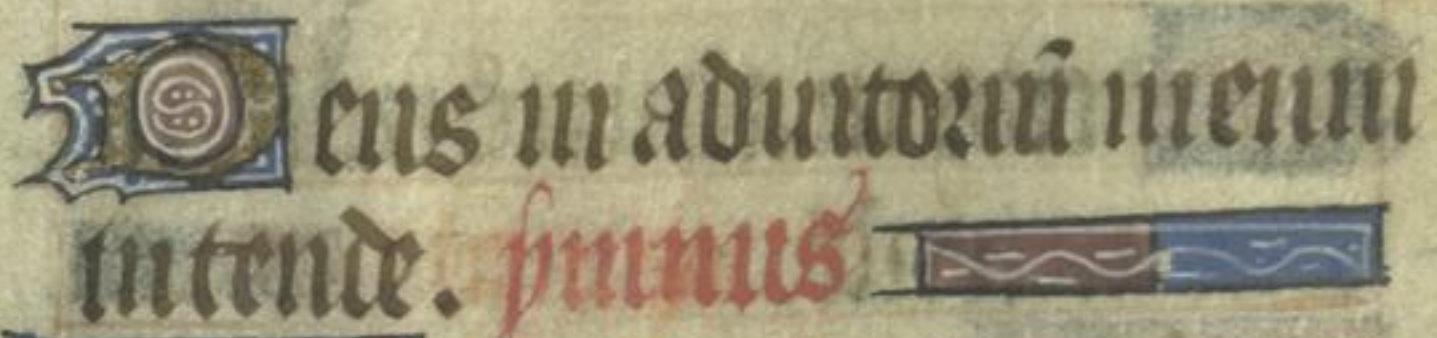 Deus in adiutoriū meum
intende. ymnus